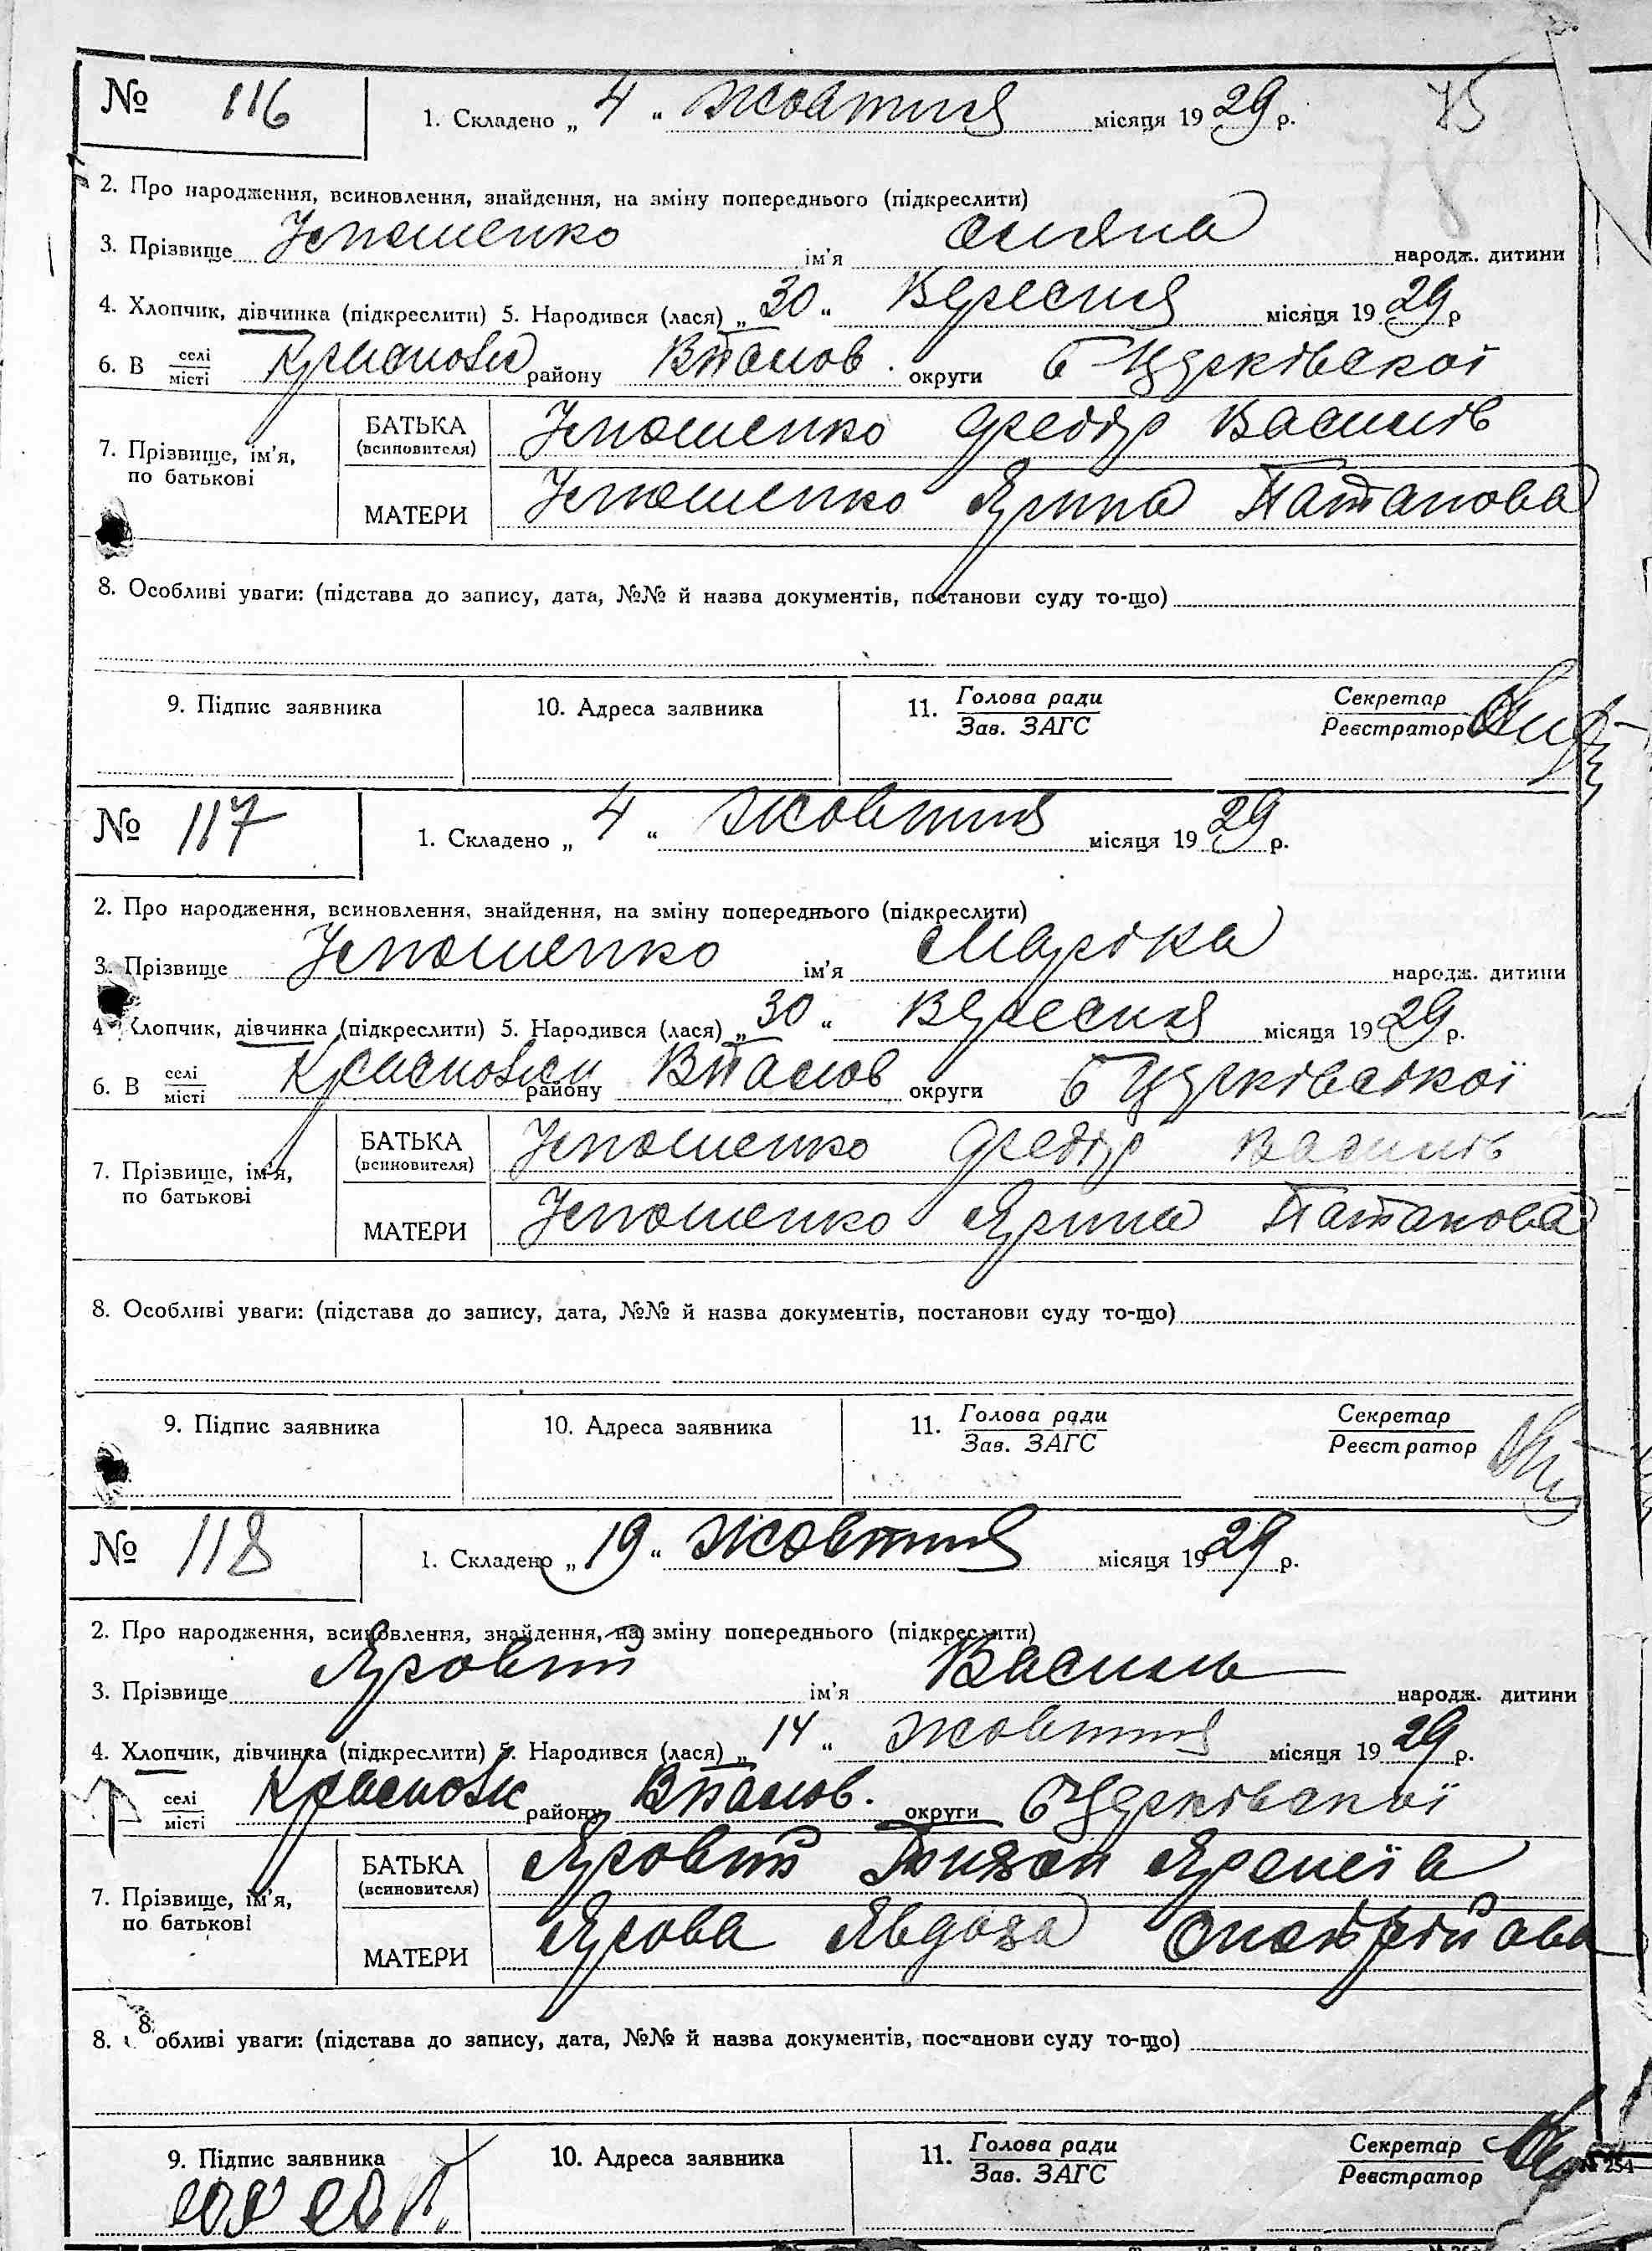 № 116 1. Складено „ 4 “ Жовтня місяця 19 29 р. 75
78
2. Про народження, всиновлення, знайдення, на зміну попереднього (підкреслити)
3. Прізвище ім'я народж. дитини
4. Хлопчик, дівчинка (підкреслити) 5. Народився (лася) „ 30 “ Вересня місяця 19 29 р
6. В селі/місті району округи Б Церківської
7. Прізвище, ім'я, по батькові
БАТЬКА (всиновителя) Федір Василів
МАТЕРИ Ярина Патапова
8. Особливі уваги: (підстава до запису, дата, №№ й назва документів, постанови суду то-що)
9. Підпис заявника 10. Адреса заявника 11. Голова ради/Зав. ЗАГС Секретар/Реєстратор
№ 117 1. Складено „ 4 “ Жовтня місяця 19 29 р.
2. Про народження, всиновлення, знайдення, на зміну попереднього (підкреслити)
3. Прізвище ім'я Марійка народж. дитини
4 Хлопчик, дівчинка (підкреслити) 5. Народився (лася) „ 30 “ Вересня місяця 19 29 р.
6. В селі/місті району округи Б Церківської
7. Прізвище, ім'я, по батькові
БАТЬКА (всиновителя) Федір Василів
МАТЕРИ Ярина Патапова
8. Особливі уваги: (підстава до запису, дата, №№ й назва документів, постанови суду то-що)
9. Підпис заявника 10. Адреса заявника 11. Голова ради/Зав. ЗАГС Секретар/Реєстратор
№ 118 1. Складено „ 19 “ Жовтня місяця 19 29 р.
2. Про народження, всиновлення, знайдення, на зміну попереднього (підкреслити)
3. Прізвище Яровий ім'я Василь народж. дитини
4. Хлопчик, дівчинка (підкреслити) 5. Народився (лася) „ 14 “ Жовтня місяця 19 29 р.
селі/місті району округи Б Церківської
7. Прізвище, ім'я, по батькові
БАТЬКА (всиновителя) Яровий
МАТЕРИ Ярова Явдоха
8. обливі уваги: (підстава до запису, дата, №№ й назва документів, постанови суду то-що)
9. Підпис заявника 10. Адреса заявника 11. Голова ради/Зав. ЗАГС Секретар/Реєстратор
254